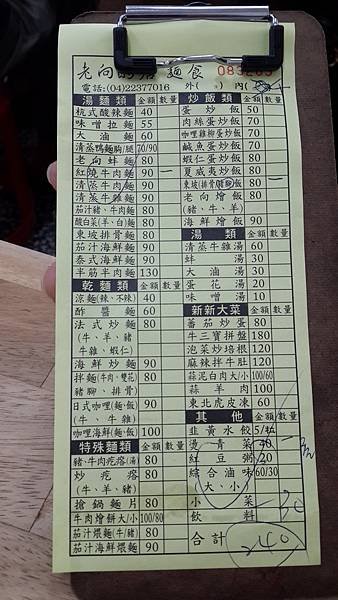 老向的店 麵食 083205
電話:(04)22377016 外( ) 內( )
湯麵類 金額 數量
杭式酸辣麵 40
味噌拉麵 55
大滷麵 60
清蒸鴨麵胸/腿 70/90
老向蚌麵 80
紅燒牛肉麵 90 一
清蒸牛肉麵 90
清蒸牛雜麵 90
茄汁豬、牛肉麵 80
酸白菜(羊、白) 80
東坡排骨麵 80
茄汁海鮮麵 90
泰式海鮮麵 90
半筋半肉麵 130
乾麵類 金額 數量
涼麵(辣、不辣) 40
酢醬麵 60
法式炒麵 80
(牛、羊、豬
牛雜、蝦仁)
海鮮炒麵 90
拌麵(牛肉、雙花) 80
豬腳、排骨)
日式咖哩(麵、飯) 90
(牛、牛雜)
咖哩海鮮(麵、飯) 100
特殊麵類 金額 數量
豬、牛肉疙瘩(湯) 80
炒疙瘩 80
(牛、羊、豬)
搶鍋麵片 80
牛肉燴餅大/小 100/80
茄汁煨麵(牛/豬) 80
茄汁海鮮煨麵 90
炒飯類 金額 數量
蛋炒飯 50
肉絲蛋炒飯 70
咖哩雞柳蛋炒飯 70
鹹魚蛋炒飯 70
蝦仁蛋炒飯 80
夏威夷炒飯 80
東坡(排骨、豬腳)飯 80 一
老向燴飯 80
(豬、牛、羊)
海鮮燴飯 90
湯類 金額 數量
清蒸牛雜湯 60
蚌湯 30
大滷湯 30
蛋花湯 20
味噌湯 10
新新大菜 金額 數量
番茄炒蛋 80
牛三寶拼盤 180
泡菜炒培根 120
麻辣拌牛肚 120
蒜泥白肉大/小 100/60
蒜羊肉 100
東北虎皮凍 60
其他 金額 數量
韭黃水餃 5/粒
燙青菜 40
紅豆粥 20
綜合滷味 60/30
(大、小)
小菜 30
飲料
合計 240